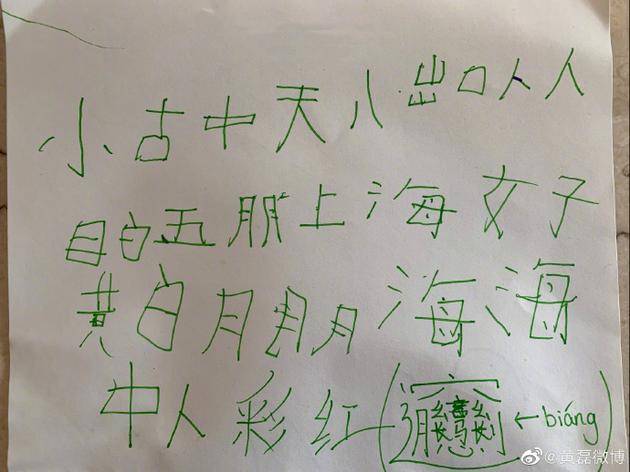 小古中天八出口人人
目白五朋上海女子
黄白月朋月海海
中人彩红(𰻞←biáng)
@黄磊微博